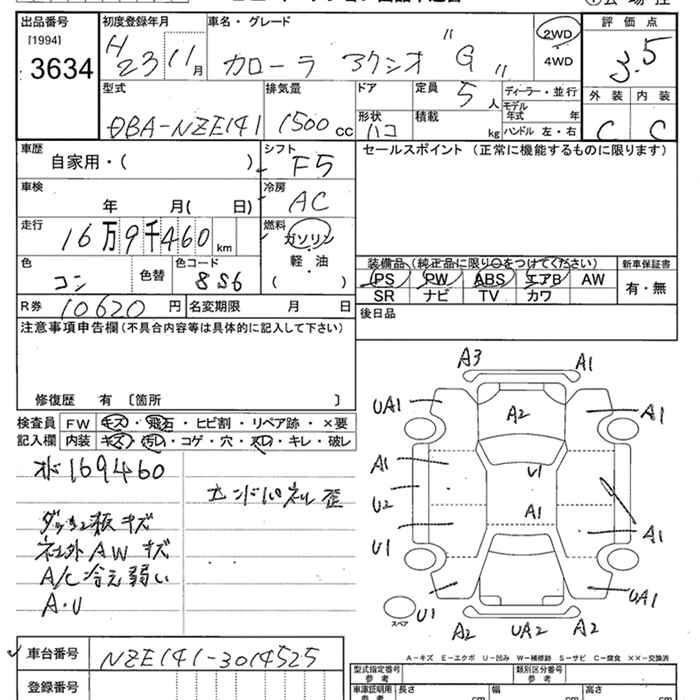 出品番号
[1994]
3634
初度登録年月
H23 11月
車名・グレード
カローラ アクシオ "G"
2WD
4WD
評価点
3.5
外装 内装
C C
型式
DBA-NZE141
排気量
1500cc
ドア
形状
ハコ
定員
5人
積載
kg
ディーラー・並行
モデル年式 年
ハンドル 左・右
車歴
自家用・( )
シフト
F5
セールスポイント (正常に機能するものに限ります)
車検
年 月( 日)
冷房
AC
走行
16万9千460km
燃料
ガソリン
軽・油
( )
色
コン
色替
色コード
8S6
装備品(純正品に限り○をつけてください)
PS PW ABS エアB AW
SR ナビ TV カワ
新車保証書
有・無
R券 10620円
名変期限 月 日
後日品
注意事項申告欄(不具合内容等は具体的に記入して下さい)
修復歴 有 〔箇所 〕
検査員 FW キズ・飛石・ヒビ割・リペア跡・×要
記入欄 内装 キズ・汚れ・コゲ・穴・スレ・キレ・破レ
169460
エンドパネル歪
ダッシュ板キズ
社外AWキズ
A/C冷え弱い
A・U
A3 A1
UA1 A2 A1
A1 U1
U2 A1
U1 A1
U1 UA1
スペア
A2 UA2 A2
A-キズ E-エクボ U-凹み W-補修跡 S-サビ C-腐食 ××-交換済
車台番号 NZE141-3014525
登録番号
型式指定番号
参考
類別区分番号
参考
車庫証明用
参考
長さ cm 幅 cm 高さ cm